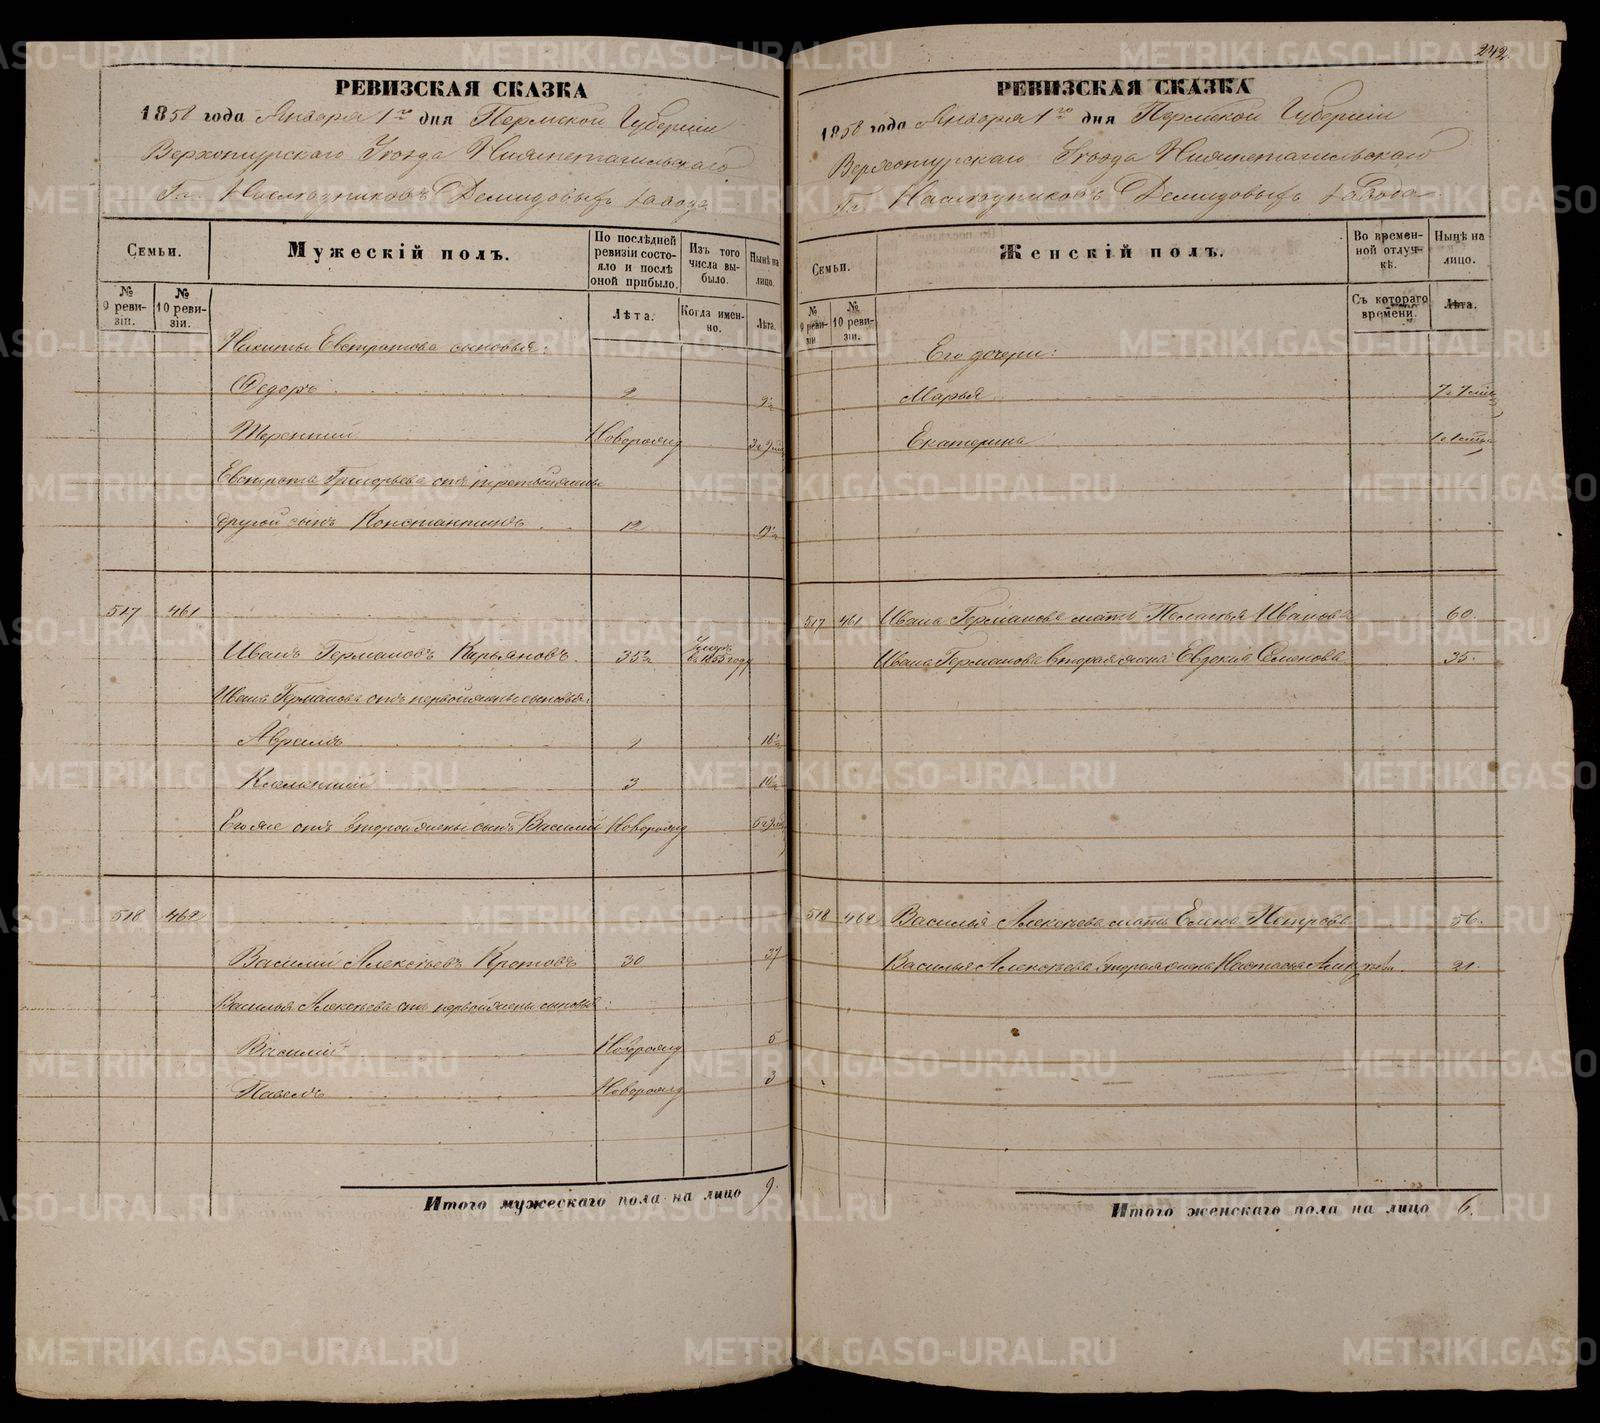 РЕВИЗСКАЯ СКАЗКА
1858 года Января 1го дня Пермской Губерніи
Верхотурскаго Уѣзда Нижнетагильскаго
Гг. Наслѣдниковъ Демидовыхъ завода
Семьи.
Мужескій полъ.
По послѣдней ревизіи состояло и послѣ оной прибыло.
Изъ того числа выбыло.
Нынѣ на лицо.
№ 9 ревизіи.
№ 10 ревизіи.
Лѣта.
Когда именно.
Лѣта.
Никиты Евстратова сыновья:
Федоръ 2
Терентий Новорожд
Евстрата Григорьева отъ третьей жены
другой сынъ Константинъ 12
517 461
Иванъ Германовъ Кирьяновъ 35½ Умеръ въ 1855 году
Ивана Германова отъ первой жены сыновья:
Авраамъ 16½
Клементий 3
Его же отъ второй жены сынъ Василий Новорожд
518 462
Василий Алексѣевъ Кротовъ 30 37
Василья Алексѣева отъ первой жены сыновья:
Василий Новорожд 5
Павелъ Новорожд 3
Итого мужескаго пола на лицо 9.
242
РЕВИЗСКАЯ СКАЗКА
1858 года Января 1го дня Пермской Губерніи
Верхотурскаго Уѣзда Нижнетагильскаго
Гг. Наслѣдниковъ Демидовыхъ завода
Семьи.
Женскій полъ.
Во временной отлучкѣ.
Нынѣ на лицо.
№ 9 ревизіи
№ 10 ревизіи.
Съ котораго времени.
Лѣта.
Его дочери:
Марья
Екатерина
517 461 Ивана Германова мать Пелагья Иванова 60.
Ивана Германова вторая жена Евдокия Семенова 35.
518 462 Василья Алексѣева мать Елена Петрова 56.
Василья Алексѣева вторая жена Настасья 21.
Итого женскаго пола на лицо 6.
METRIKI.GASO-URAL.RU